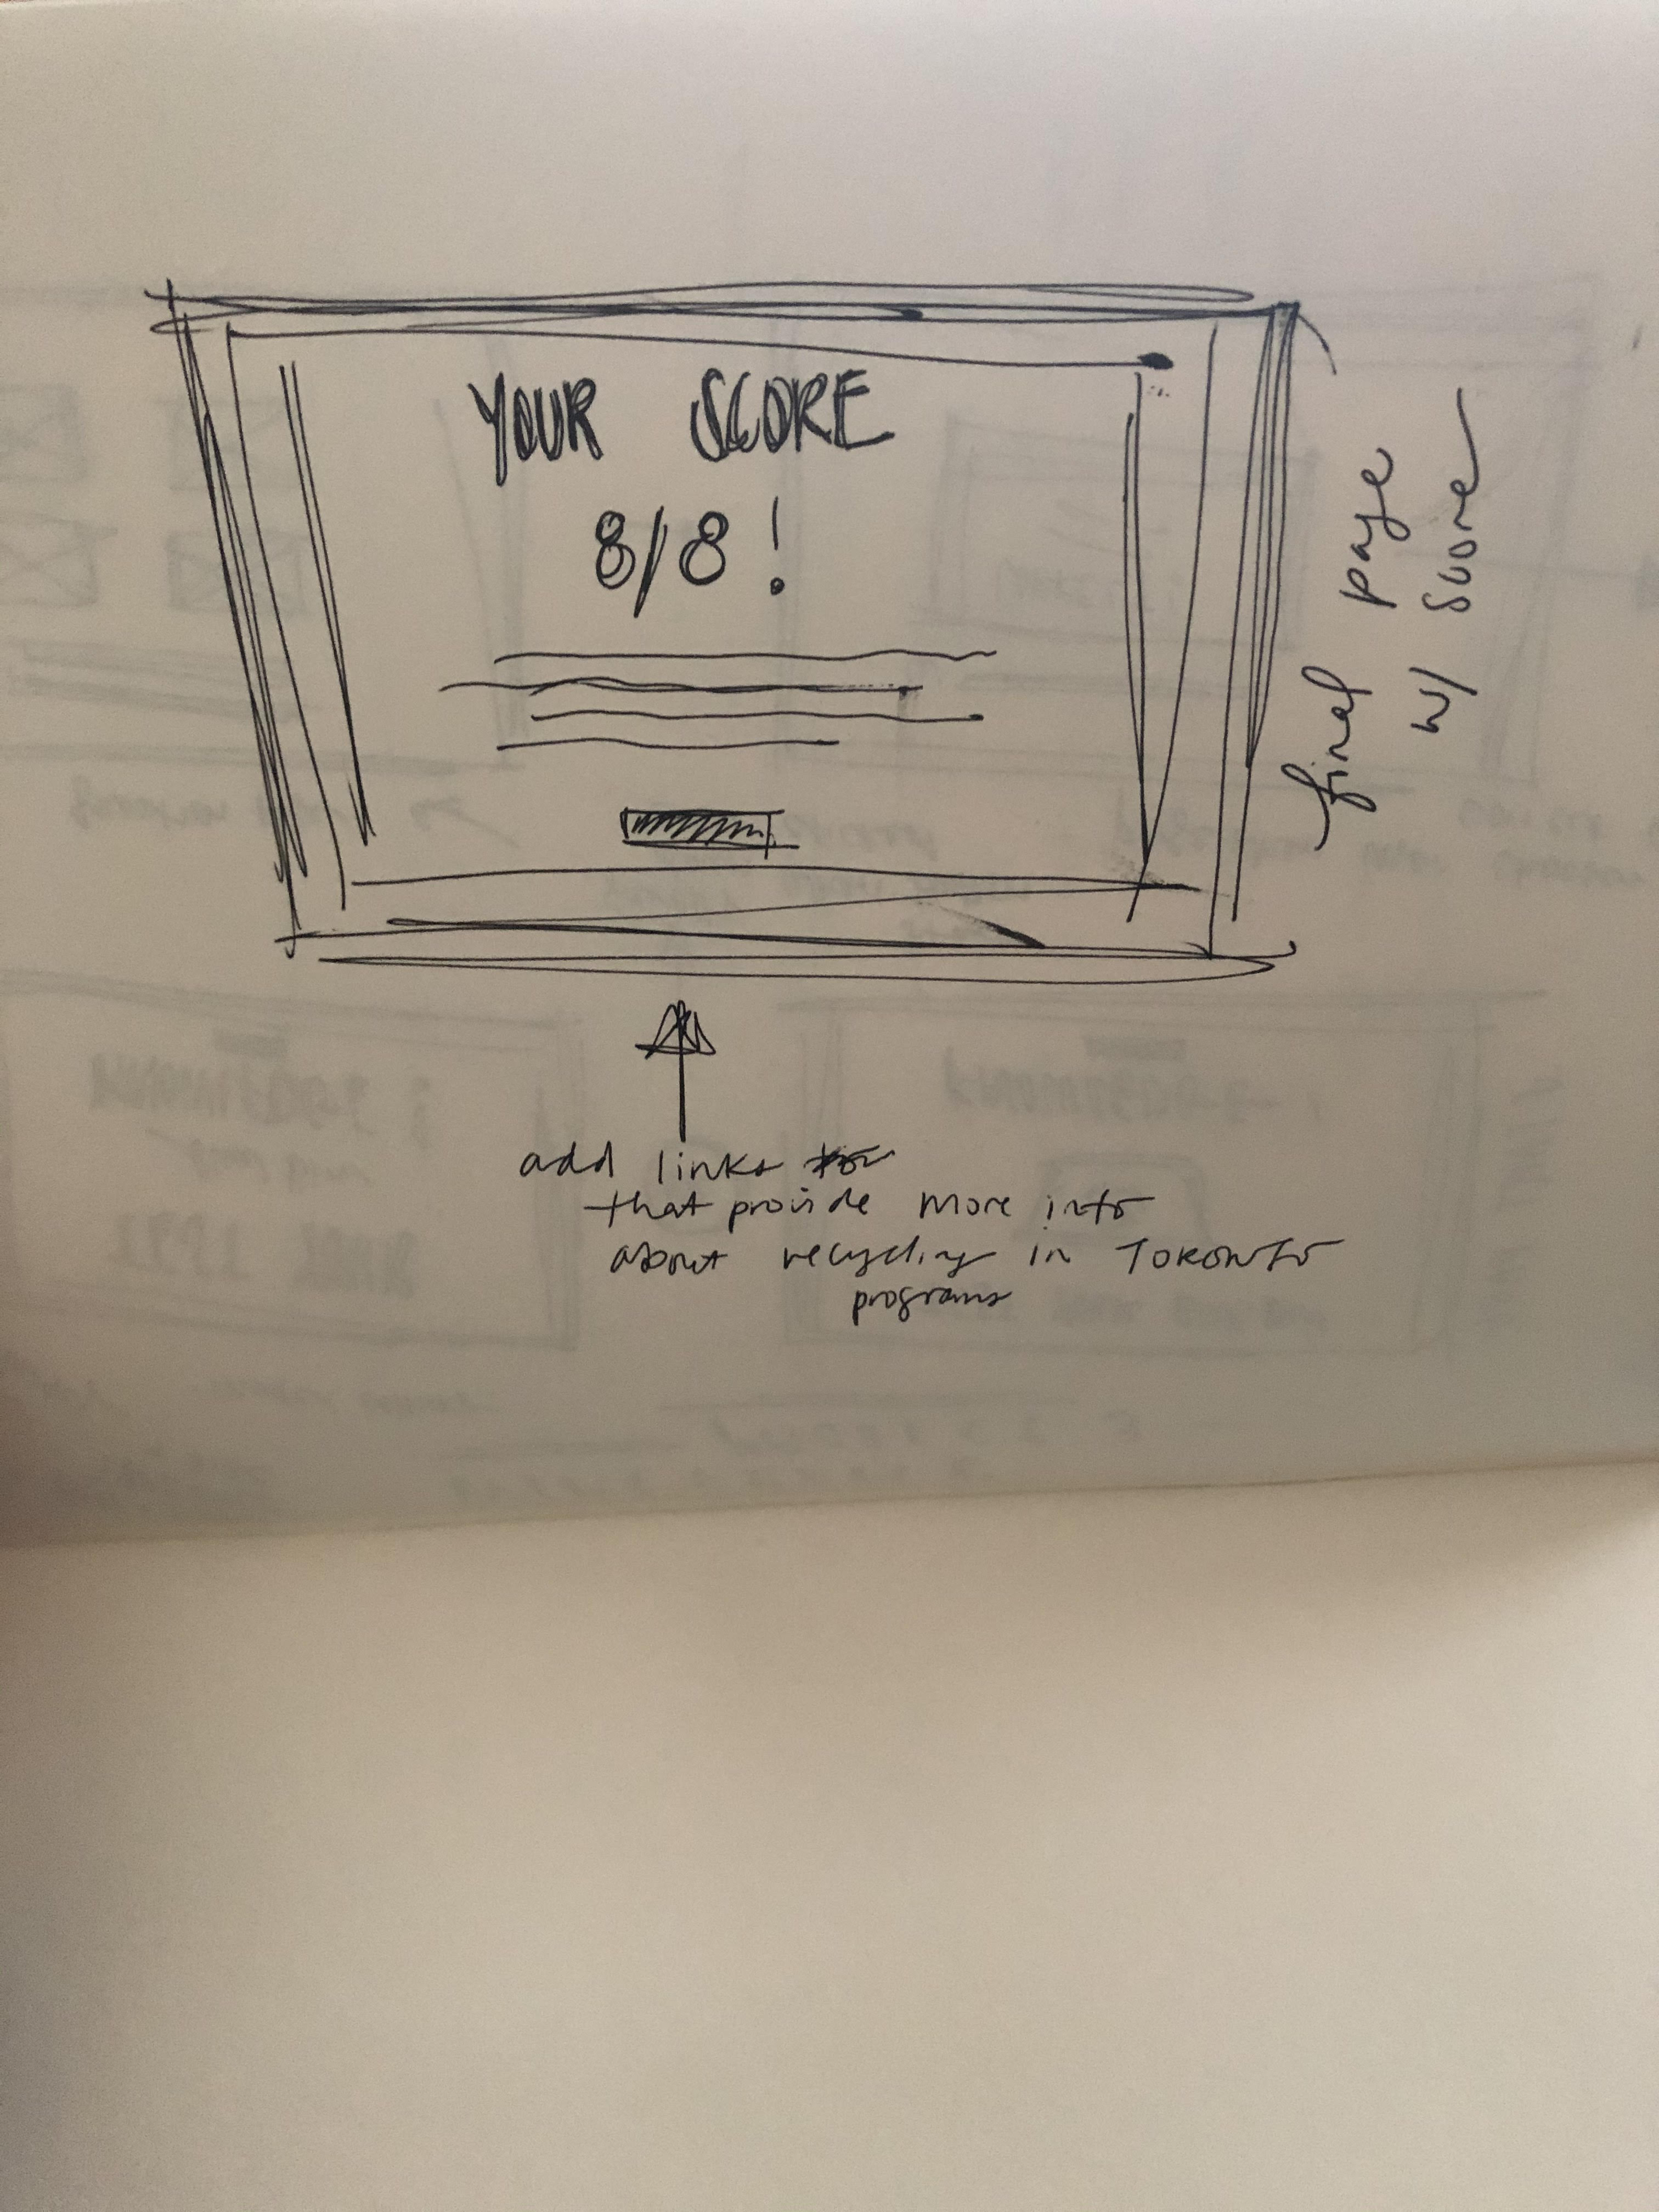 YOUR SCORE
8/8!
final page
w/ score
add links
that provide more info
about recycling in TORONTO
programs